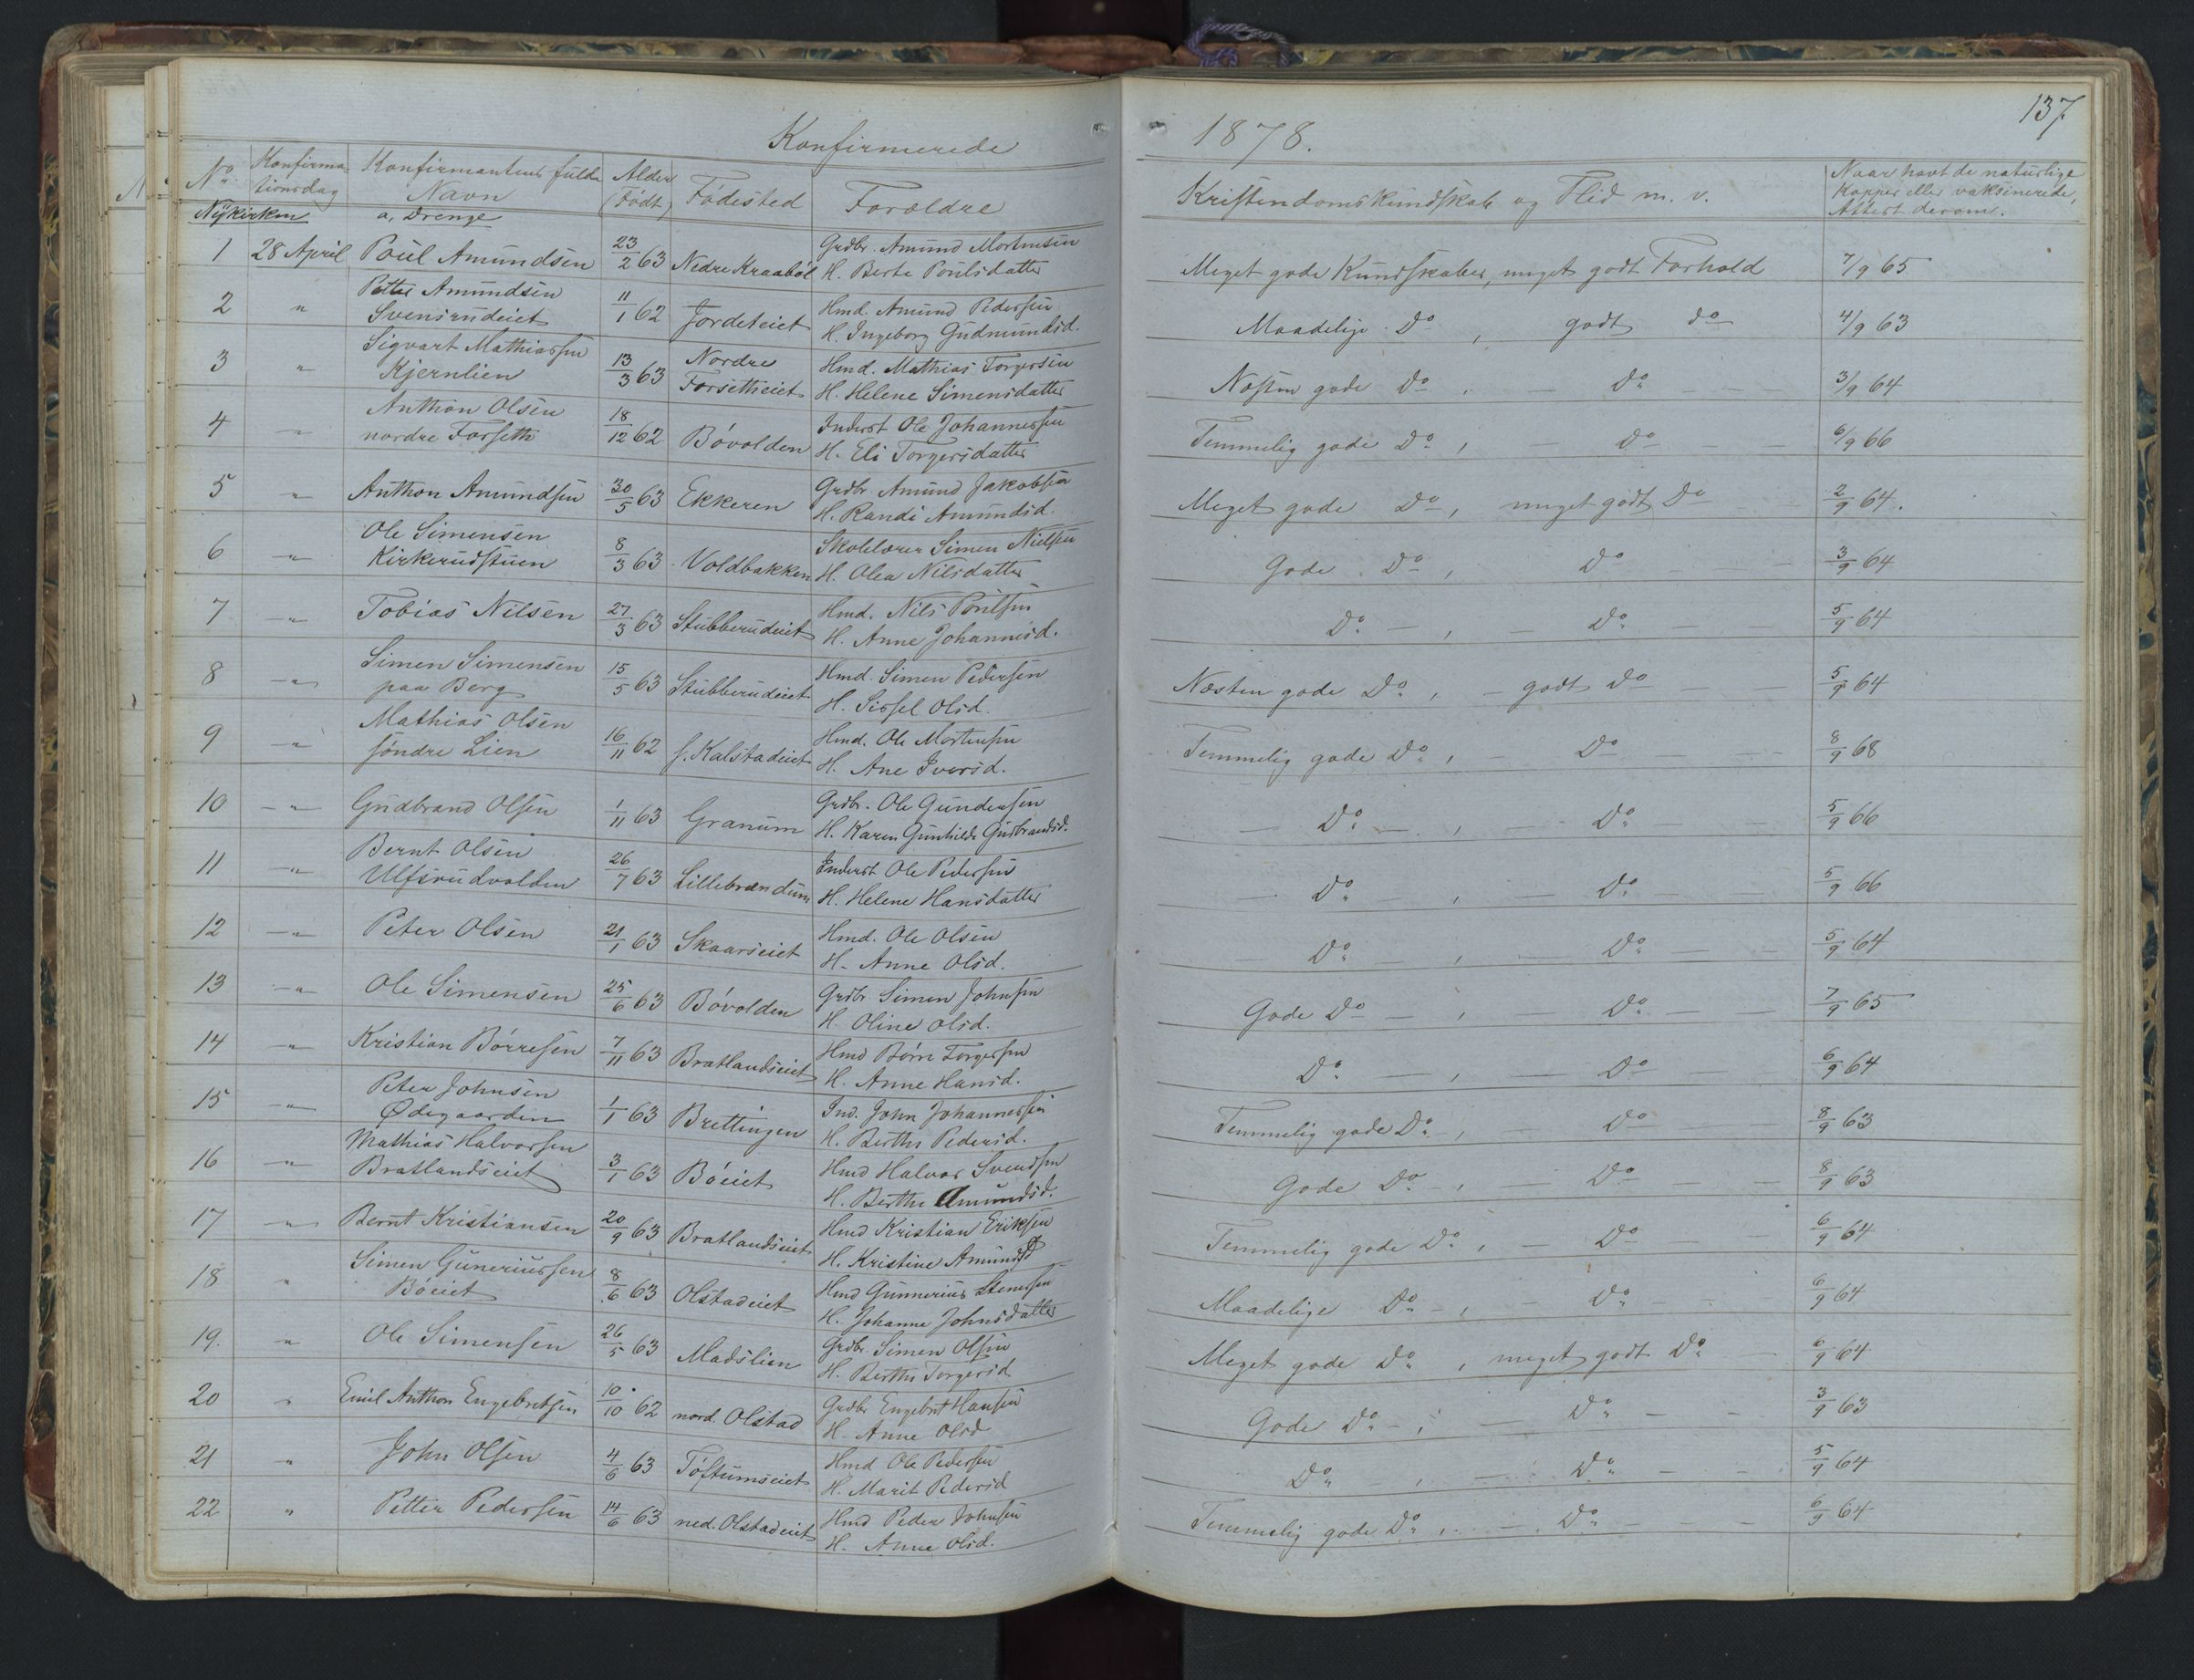 Konfirmerede
1878.
137
No. Konfirma-tionsdag Konfirmantens fulde Navn Alder (Født) Fødested Forældre Kristendomskundskab og Flid m. v. Naar havt de naturlige Kopper eller vaksinerede, Attest derom.
Nykirken a, Drenge
1 28 April Poul Amundsen 23/2 63 Nedre Kraabøl Grdbr. Amund Mortensen
H. Berte Poulsdatter Meget gode Kundskaber, meget godt Forhold 7/9 65
2 " Petter Amundsen
Svensrudeiet 11/1 62 Jordeteiet Hmd. Amund Pedersen
H. Ingeborg Gudmundsd. Maadelige Do, godt do 4/9 63
3 " Sigvart Mathiassen
Kjernlien 13/3 63 Nordre
Forsetheiet Hmd. Mathias Torgersen
H. Helene Simensdatter Næsten gode Do, — Do 3/9 64
4 " Anthon Olsen
nordre Forseth 18/12 62 Bövolden Inderst Ole Johannessen
H. Eli Torgersdatter Temmelig gode Do, — Do 6/9 66
5 " Anthon Amundsen 30/5 63 Ekkeren Grdbr. Amund Jakobsen
H. Randi Amundsd. Meget gode Do, meget godt Do 2/9 64.
6 " Ole Simensen
Kirkerudstuen 8/3 63 Voldbakken Skolelærer Simen Nielsen
H. Olea Nilsdatter Gode Do, Do 3/9 64
7 " Tobias Nilsen 27/3 63 Stubberudeiet Hmd. Nils Poulsen
H. Anne Johannesd. Do — , — Do 5/9 64
8 " Simen Simensen
paa Berg 15/5 63 Stubberudeiet Hmd. Simen Pedersen
H. Sissel Olsd. Næsten gode Do, — godt Do 5/9 64
9 " Mathias Olsen
söndre Lien 16/11 62 s. Kalstadeiet Hmd. Ole Mortensen
H. Ane Iversd. Temmelig gode Do, — Do 8/9 68
10 " Gudbrand Olsen 1/11 63 Granum Grdbr. Ole Gundersen
H. Karen Gunhilde Gudbrandsd. — Do — , — Do 5/9 66
11 " Bernt Olsen
Ulfsrudvolden 26/7 63 Lillebrændum Inderst Ole Pedersen
H. Helene Hansdatter Do — , — Do 5/9 66
12 " Peter Olsen 21/1 63 Skaarseiet Hmd. Ole Olsen
H. Anne Olsd. Do — , — Do 5/9 64
13 " Ole Simensen 25/6 63 Bövolden Grdbr. Simen Johnsen
H. Oline Olsd. Gode Do — , — Do 7/9 65
14 " Kristian Börresen 7/11 63 Bratlandseiet Hmd Börre Torgersen
H. Anne Hansd. Do — , — Do 6/9 64
15 " Peter Johnsen
Ødegaarden 1/1 63 Brettingen Ind. John Johannessen
H. Berthe Pedersd. Temmelig gode Do, — Do 8/9 63
16 " Mathias Halvorsen
Bratlandseiet 3/1 63 Böeiet Hmd Halvor Svendsen
H. Berthe Amundsd. Gode Do, — Do 8/9 63
17 " Bernt Kristiansen 20/9 63 Bratlandseiet Hmd Kristian Eriksen
H. Kristine Amundsd Temmelig gode Do, — Do 6/9 64
18 " Simen Guneriussen
Böeiet 8/6 63 Olstadeiet Hmd Gunnerius Stenersen
H. Johanne Johnsdatter Maadelige Do — , — Do 6/9 64
19. " Ole Simensen 26/5 63 Madslien Grdbr. Simen Olsen
H. Berthe Torgersd Meget gode Do, meget godt Do 6/9 64
20 " Emil Anthon Engebretsen 10/10 62 nord. Olstad Grdbr Engebret Hansen
H. Anne Olsd Gode Do — , — Do 3/9 63
21 " John Olsen 4/6 63 Töftumseiet Hmd Ole Pedersen
H. Marit Pedersd Do , — Do 5/9 64
22 " Petter Pedersen 14/6 63 ned. Olstadeiet Hmd Peder Johnsen
H. Anne Olsd. Temmelig gode Do, — Do 6/9 64